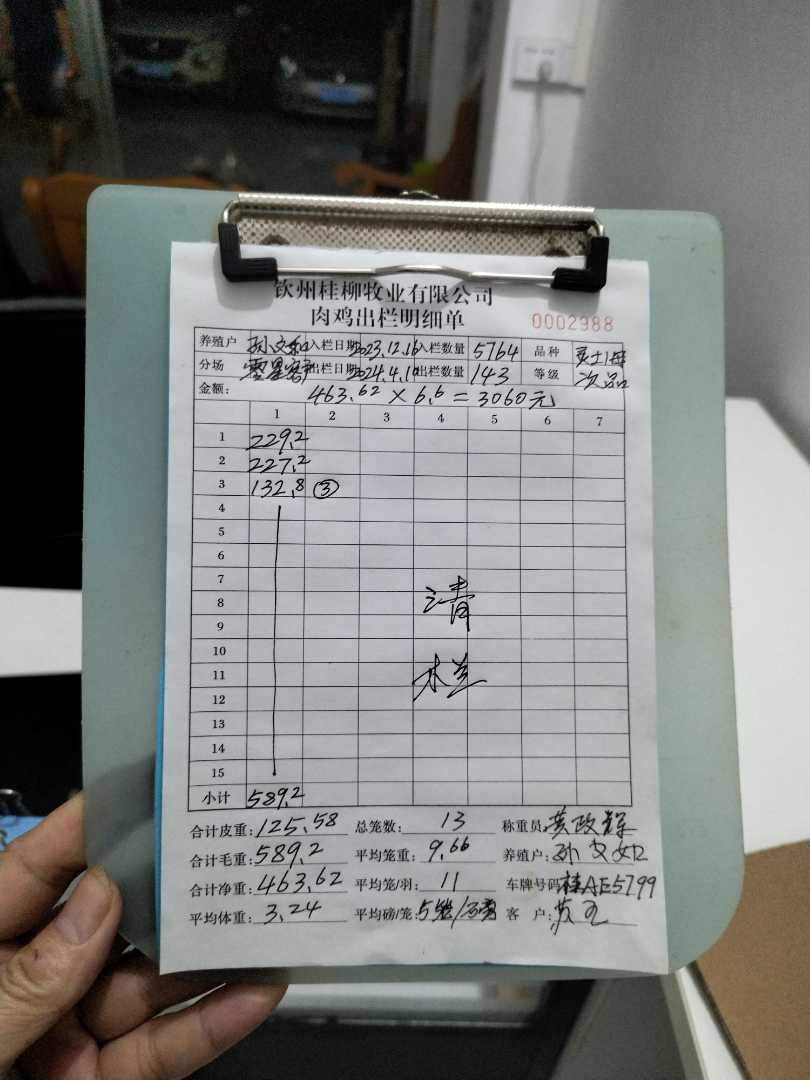 钦州桂柳牧业有限公司
肉鸡出栏明细单
0002988
养殖户 入栏日期 2023.12.16 入栏数量 5764 品种
分场 出栏日期 2024.4.10 出栏数量 143 等级 次品
金额: 463.62 × 6.6 = 3060元
1 2 3 4 5 6 7
1 229.2
2 227.2
3 132.8 ③
4
5
6
7
8
9
10
11
12
13
14
15
清
栏
小计 589.2
合计皮重: 125.58 总笼数: 13 称重员: 黄政辉
合计毛重: 589.2 平均笼重: 9.66 养殖户: 孙文
合计净重: 463.62 平均笼/羽: 11 车牌号码 桂AE5799
平均体重: 3.24 平均磅/笼: 5笼/磅 客户: